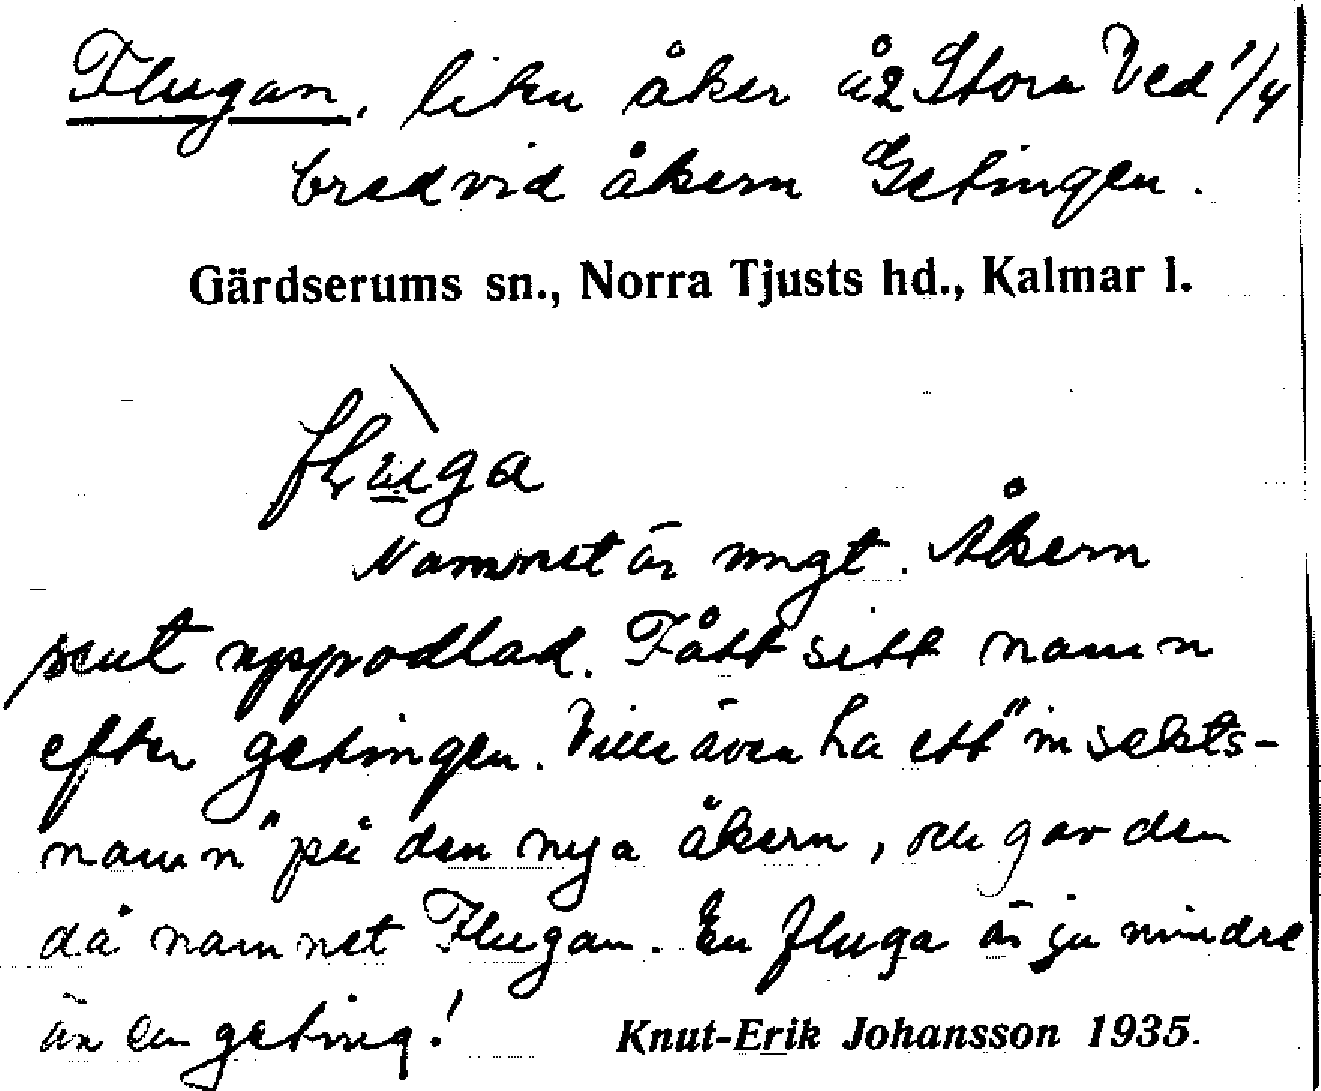 Flugan, liten åker å Stora Ved 1/4
bredvid åkern Getingen.
Gärdserums sn., Norra Tjusts hd., Kalmar l.
fluga
Namnet är nygt. Åkern
sent uppodlad. Fått sitt namn
efter getingen. Ville även ha ett "insekts-
namn" på den nya åkern, och gav den
då namnet Flugan. En fluga är ju mindre
än en geting!
Knut-Erik Johansson 1935.